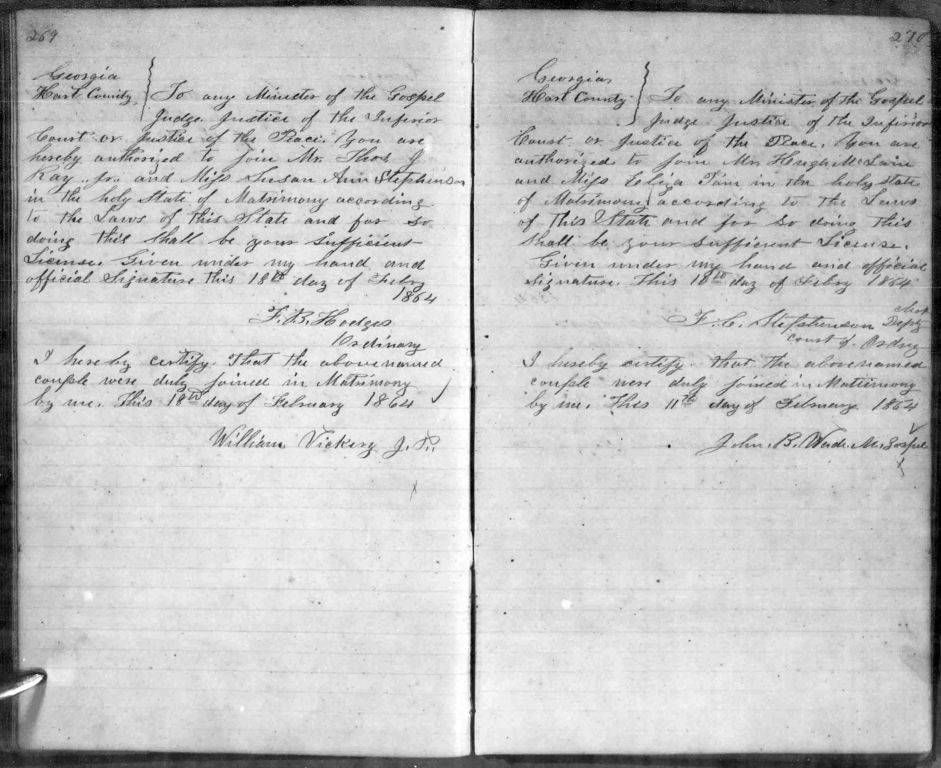 269
Georgia
Hart County
To any Minister of the Gospel
Judge Justice of the Inferior
Court or Justice of the Peace. You are
hereby authorized to join Mr. Thos J
Ray. Jr. and Miss Susan Ann Stephenson
in the holy State of Matrimony according
to the Laws of this State and for so
doing this Shall be your Sufficient
License. Given under my hand and
official Signature this 18th day of Febry
1864
F. B. Hodges
Ordinary
I hereby certify that the above named
couple were duly joined in Matrimony
by me. This 18th day of February 1864
William Vickery J. P.
270
Georgia
Hart County
To any Minister of the Gospel
Judge Justice of the Inferior
Court or Justice of the Peace. You are
authorized to join Mr. Hugh McLain
and Miss Eliza in the holy state
of Matrimony according to the Laws
of this State and for so doing this
Shall be your Sufficient License.
Given under my hand and official
Signature. This 10th day of Febry 1864
F. C. Stephenson Depty
Court of Ordny
I hereby certify that the above named
couple were duly joined in Matrimony
by me. This 11th day of February 1864
John. B. Wade. M. Gospel